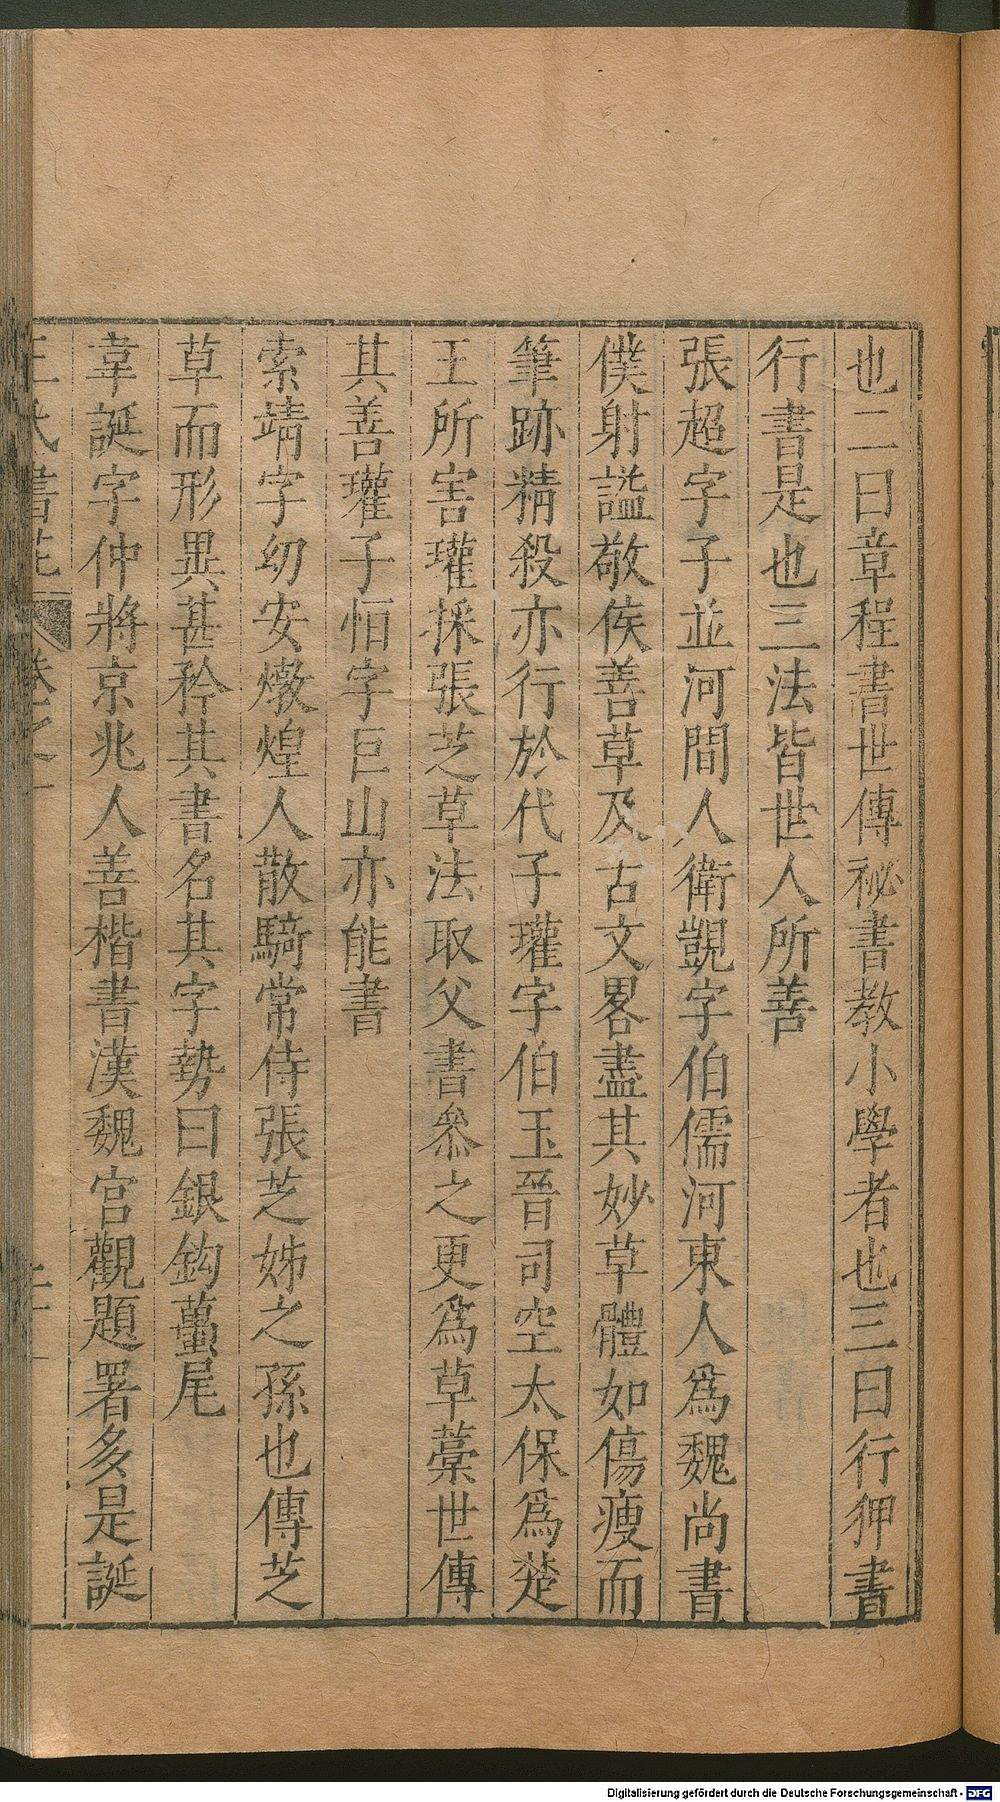 也二曰章程書世傳祕書教小學者也三曰行狎書
行書是也三法皆世人所善
張超字子並河間人衛覬字伯儒河東人為魏尚書
僕射謚敬侯善草及古文畧盡其妙草體如傷瘦而
筆跡精殺亦行於代子瓘字伯玉晉司空太保為楚
王所害瓘採張芝草法取父書叅之更為草藁世傳
其善瓘子恒字巨山亦能書
索靖字幼安燉煌人散騎常侍張芝姊之孫也傳芝
草而形異甚矜其書名其字勢曰銀鈎蠆尾
韋誕字仲將京兆人善楷書漢魏宫觀題署多是誕
王氏書苑 卷之一
Digitalisierung gefördert durch die Deutsche Forschungsgemeinschaft - DFG